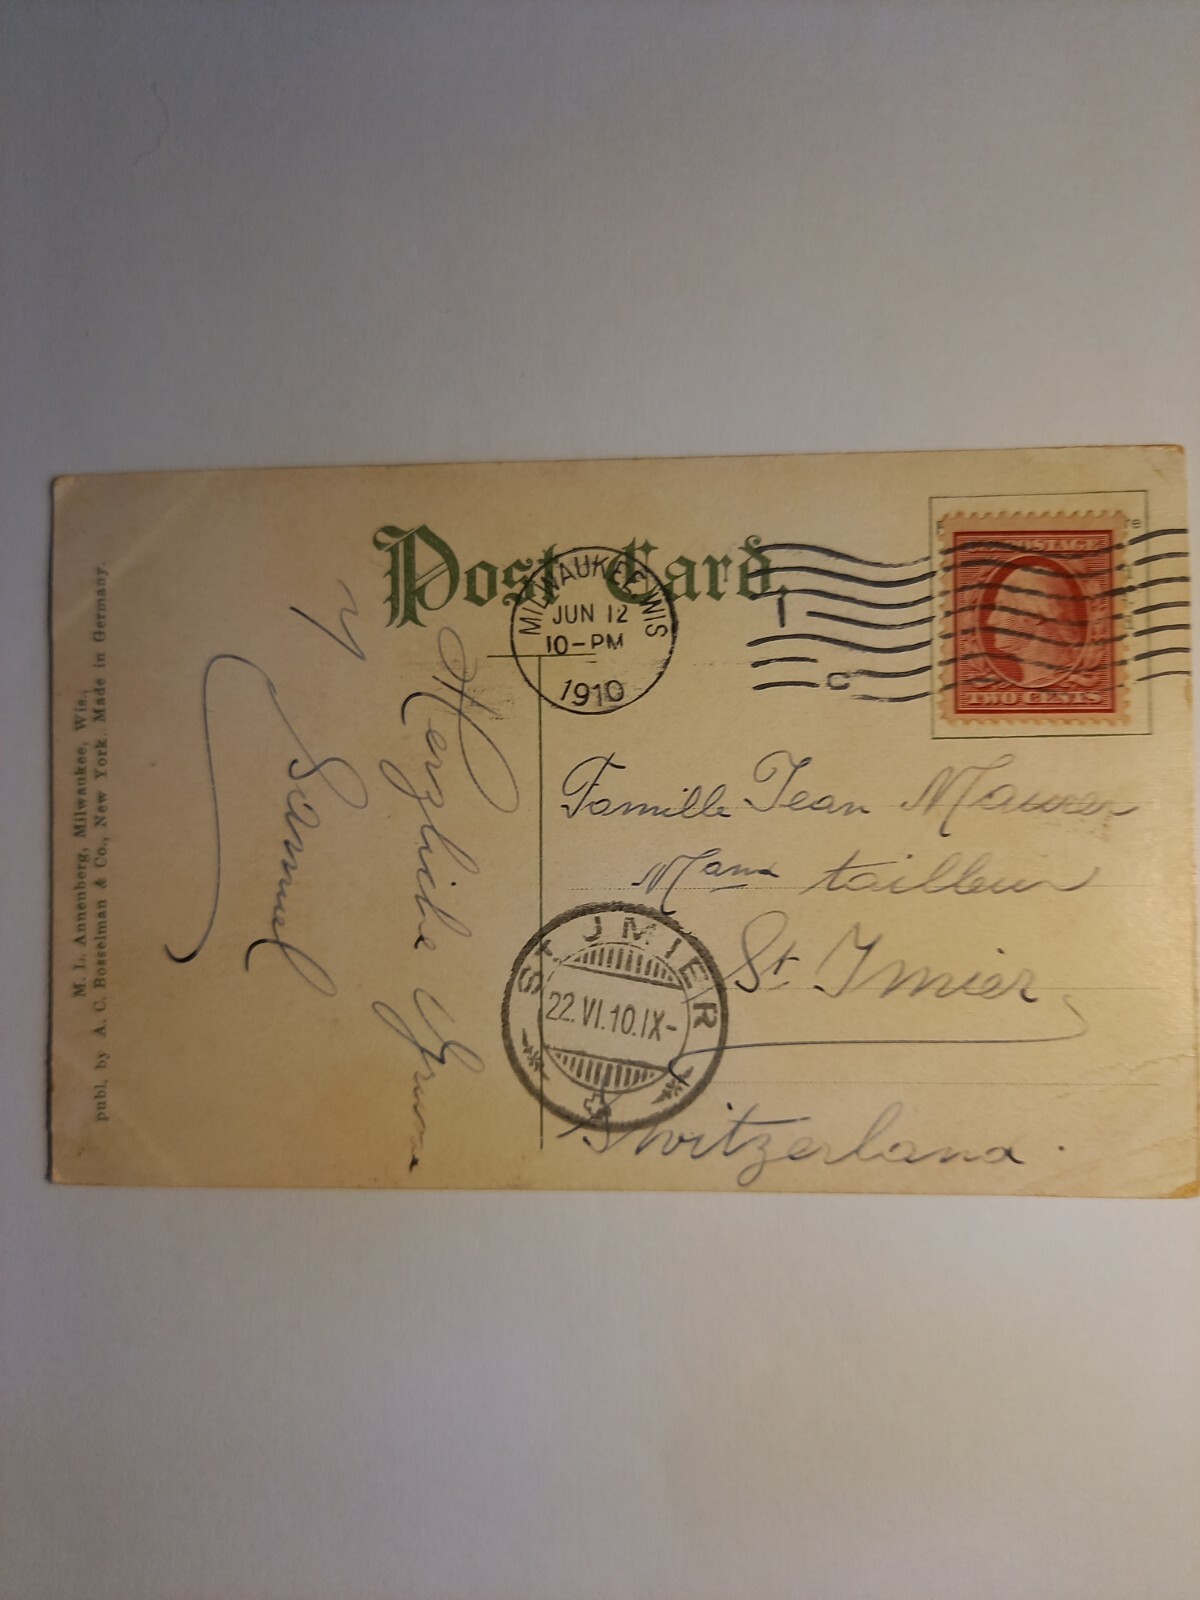 Post Card.
MILWAUKEE WIS
JUN 12
10-PM
1910
C
POSTAGE
TWO CENTS
Herzliche Grüsse
Samuel
Famille Jean Maurer
tailleur
St Imier
Switzerland.
ST JMIER
22.VI.10.IX-
M. L. Annenberg, Milwaukee, Wis.,
publ. by A. C. Bosselman & Co., New York. Made in Germany.